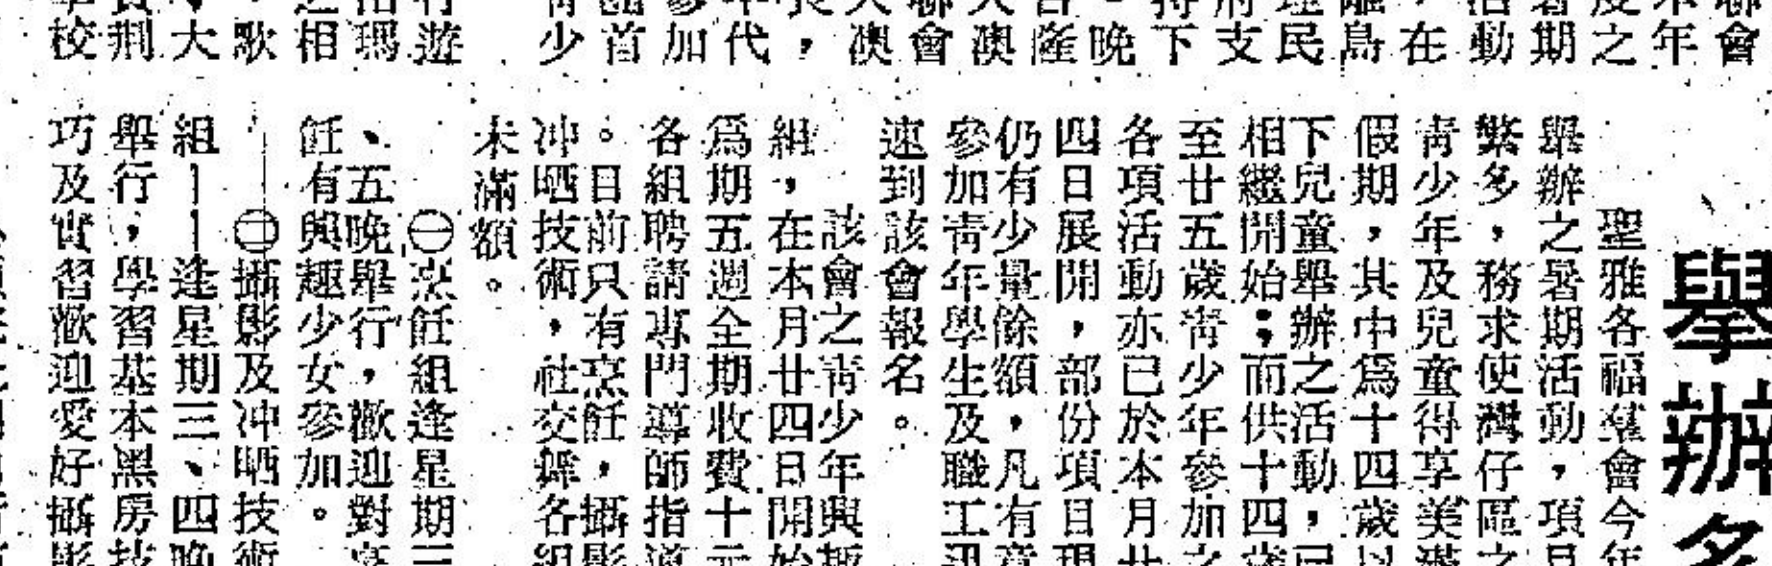 會
年
之
期
動
在
島
民
支
下
晚
隆
澳
會
澳
，
代
加
首
少
遊
瑪
相
歌
大
荆
校
舉辦多
聖雅各福羣會今年
舉辦之暑期活動，項目
繁多，務求使灣仔區之
青少年及兒童得享美滿
假期，其中爲十四歲以
下兒童舉辦之活動，已
相繼開始；而供十四歲
至廿五歲青少年參加之
各項活動亦已於本月廿
四日展開，部份項目現
仍有少量餘額，凡有意
參加青年學生及職工迅
速到該會報名。
該會之青少年興趣
組，在本月廿四日開始
爲期五週全期收費十元
各組聘請專門導師指導
。目前只有烹飪，攝影
冲晒技術，社交舞各組
未滿額。
㊀烹飪組逢星期三
、五晚舉行，歡迎對烹
飪有興趣少女參加。
㊁攝影及冲晒技術
組——逢星期三、四晚
舉行，學習基本黑房技
巧及實習歡迎愛好攝影